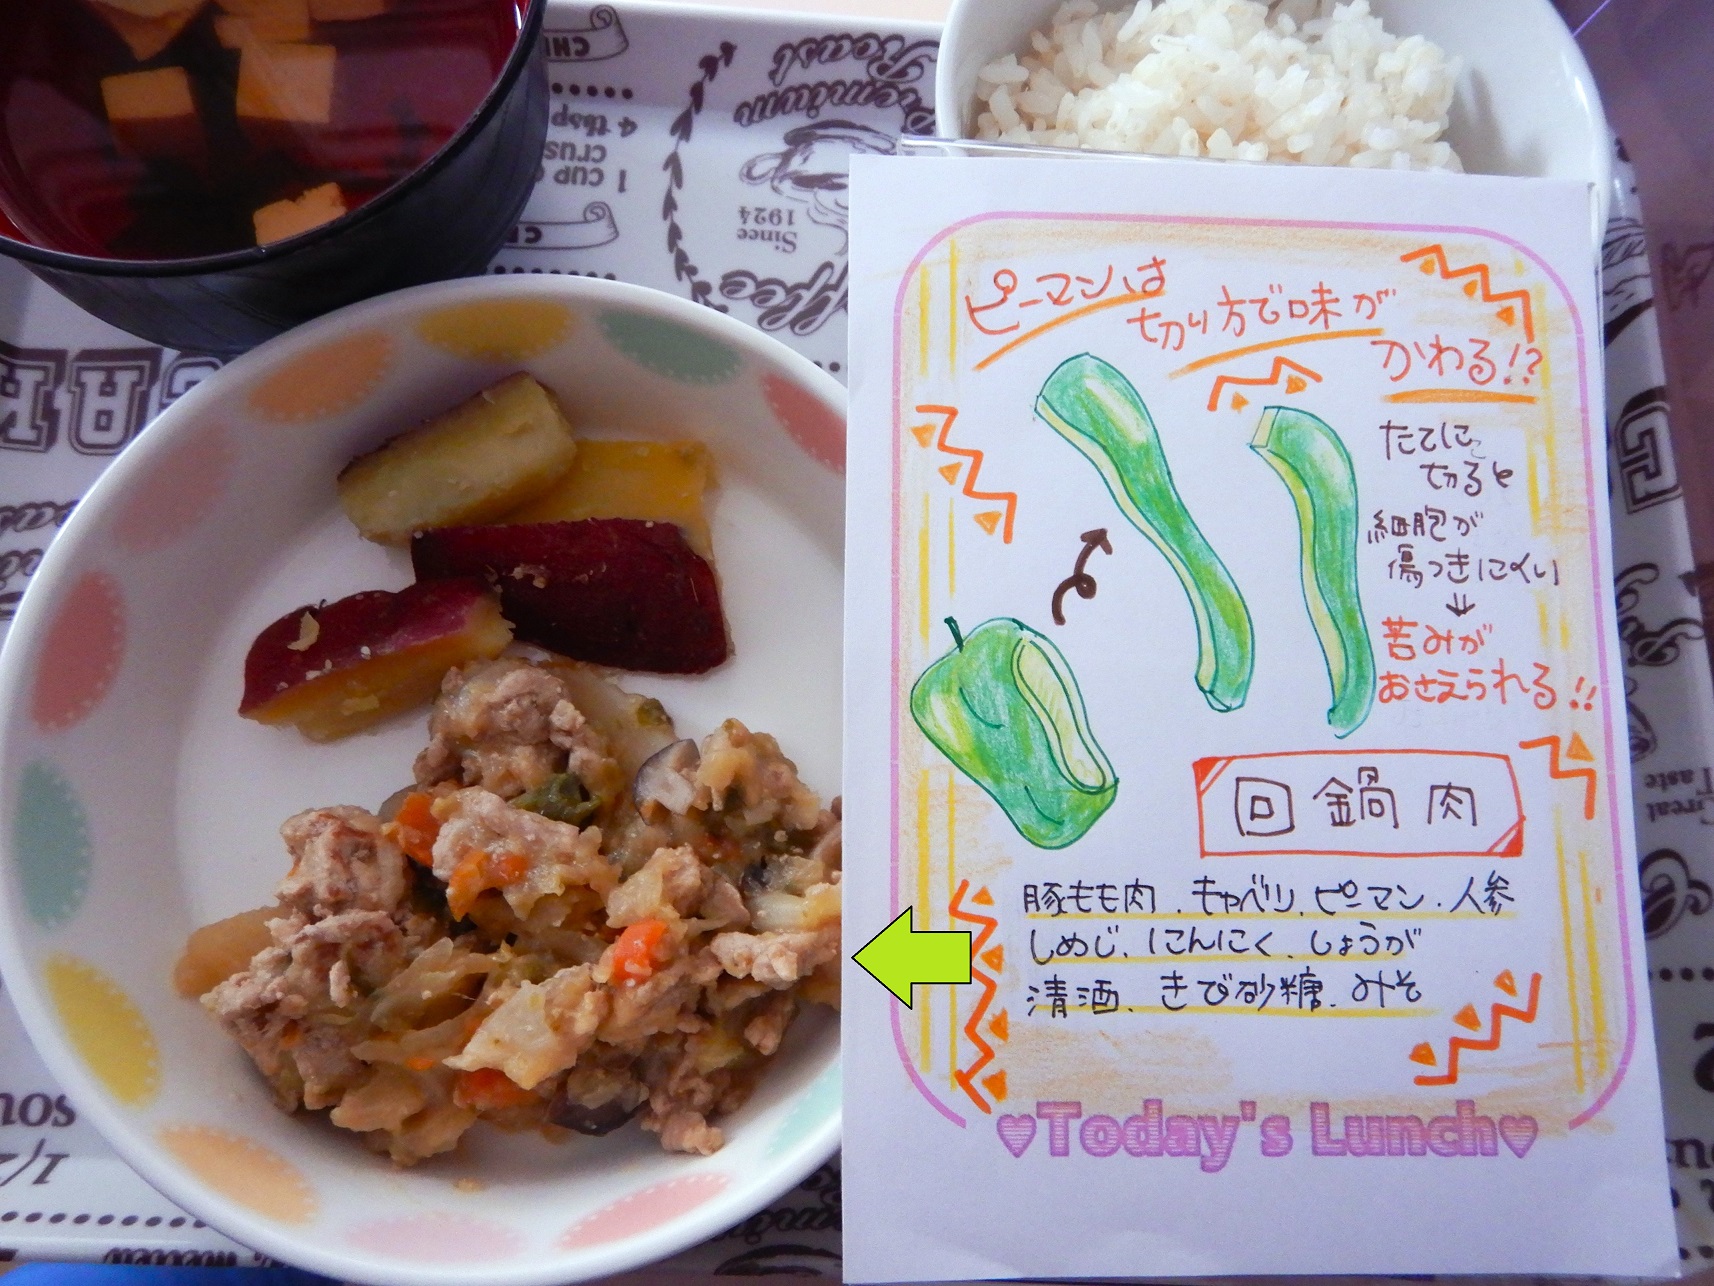 ピーマンは
切り方で味が
かわる!?
たてに
切ると
細胞が
傷つきにくい
↓
苦みが
おさえられる!!
回鍋肉
豚もも肉、キャベツ、ピーマン、人参
しめじ、にんにく、しょうが
清酒、きび砂糖、みそ
♥Today's Lunch♥
Premium
Roast
Since
1924
Coffee
4 tbsp
1 CUP
Great
Taste
1/2